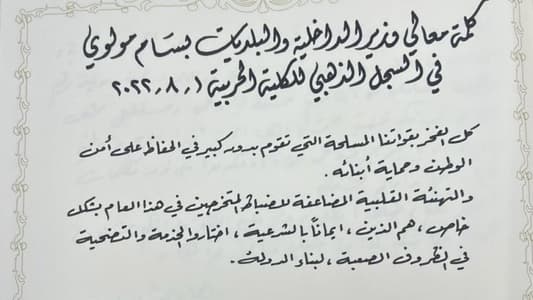 كلمة معالي وزير الداخلية والبلديات بسام مولوي
في السجل الذهبي للكلية الحربية ٢٠٢٢.٨.١
كل الفخر بقواتنا المسلحة التي تقوم بدور كبير في الحفاظ على أمن
الوطن وحماية أبنائه.
والتهنئة القلبية المضاعفة للضباط المتخرجين في هذا العام بشكل
خاص، هم الذين، ايماناً بالشرعية، اختاروا الخدمة والتضحية
في الظروف الصعبة، لبناء الدولة.